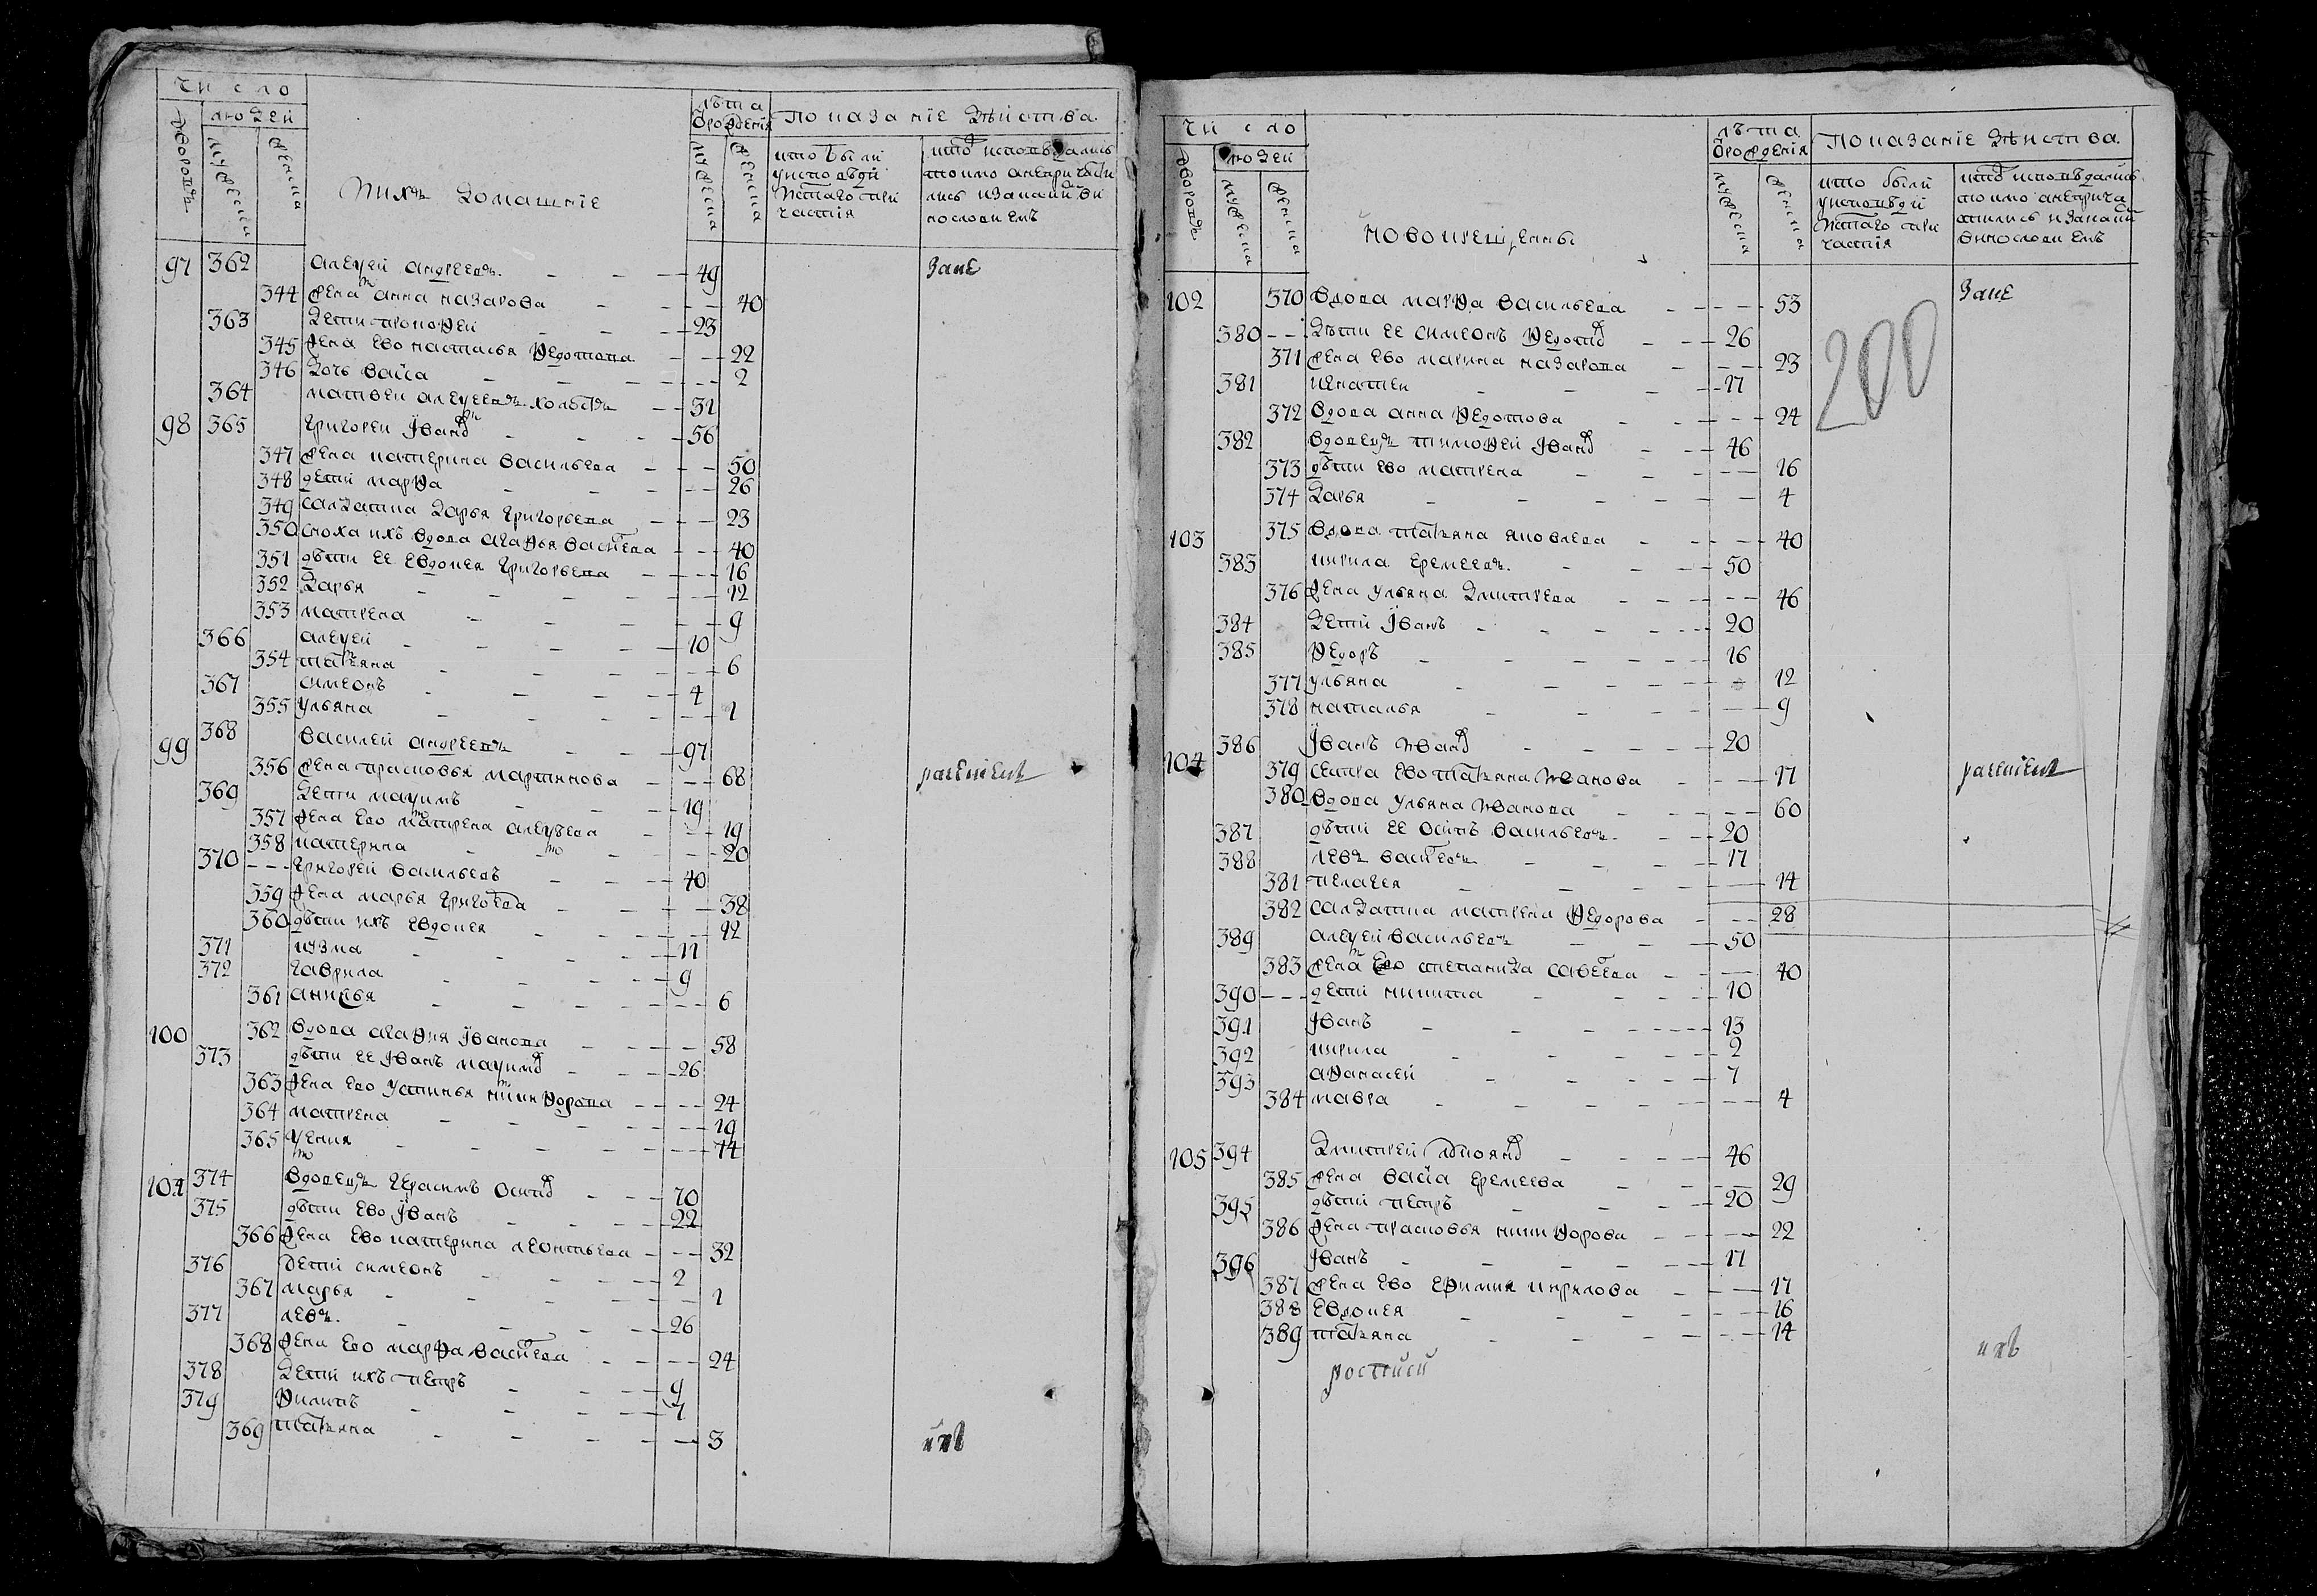 число
людей
дворовъ
мужеска
женска
ихъ домашніе
лѣта
ѿ рожденія
мужеска
женска
показаніе дѣйства
кто были
у исповѣди
и ст҃аго при
частія
кто исповѣдались
токмо а не прича
97 362 алеѯей андреевъ 49 зане
344 жена анна назарова 40
363 дети прокофей 23
345 жена ево настасья федотова 22
346 дочь васса 2
364 матвей алеѯеевъ холостъ 31
98 365 григорей іванов 56
347 жена катерина васильева 50
348 дети марфа 26
349 салдатка дарья григорьева 23
350 сноха ихъ вдова агафья василева 40
351 дѣти ее евдокея григорьева 16
352 дарья 12
353 матрена 9
366 алеѯей 10
354 татьяна 6
367 симеонъ 4
355 ульяна 1
99 368 василей андреевъ 97
356 жена прасковья мартинова 68 раченіемъ
369 дети маѯимъ 19
357 жена ево матрена алеѯѣева 19
358 катерина 20
370 григорей васильевъ 40
359 жена марья григорева 38
360 дѣти ихъ евдокея 12
371 кузма 11
372 гаврила 9
361 акилѣя 6
100 362 вдова агафия іванова 58
373 дѣти ее іванъ маѯимов 26
363 жена ево устинья никифорова 24
364 матрена 19
365 ѯения 14
101 374 вдовецъ герасимъ осипов 70
375 дѣти ево іванъ 22
366 жена ево катерина леонтьева 32
376 дети симеонъ 2
367 марья 1
377 левъ 26
368 жена ево марфа василева 24
378 дети ихъ петръ 9
379 филипъ 7
369 татьяна 3 ихъ
число
людей
дворовъ
мужеска
женска
новокрещенны
лѣта
ѿ рожденія
мужеска
женска
показаніе дѣйства
кто были
у исповѣди
и ст҃аго при
частія
кто исповѣдались
токмо а не прича
стились и за какій
винословіемъ
102 370 вдова марфа васильева 53 зане
380 дѣти ее симеонъ федотов 26
200
371 жена ево марина назарова 23
381 игнатеи 17
372 вдова анна федотова 24
382 вдовецъ тимофей іванов 46
373 дѣти ево матрена 16
374 дарья 4
103 375 вдова татьяна яковлева 40
383 кирила еремеевъ 50
376 жена ульяна дмитрева 46
384 дети іванъ 20
385 федоръ 16
377 ульяна 12
378 наталья 9
104 386 іванъ іванов 20
379 сестра ево татьяна іванова 17 раченіемъ
380 вдова ульяна іванова 60
387 дѣти ее осипъ васильевъ 20
388 левъ василевъ 17
381 пелагея 14
382 салдатка матрена федорова 28
389 алеѯей васильевъ 50
383 жена ево степанида савелева 40
390 дети никита 10
391 іванъ 13
392 кирила 2
393 афанасей 7
384 мавра 4
105 394 дмитрей 46
385 жена васса еремеева 29
395 дѣти петръ 20
386 жена прасковья никифорова 22
396 іванъ 17
387 жена ево ефимия кирилова 17
388 евдокея 16
389 татьяна 14
ихъ
росписи